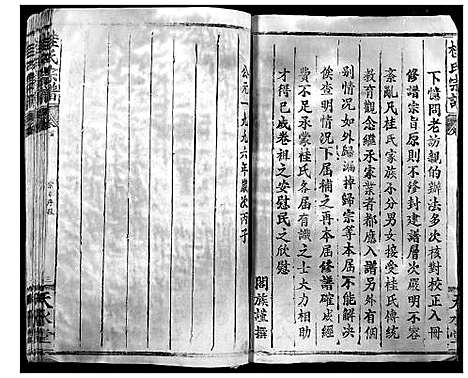 桂氏宗譜
下憶問老訪親的辦法多次核對校正入冊
修譜宗旨原則不修封建譜層次嚴明不容
紊亂凡桂氏家族不分男女接受桂氏傳統
教育觀念繼承家業者都應入譜另外有個
别情況如外歸漏掉歸宗等本届不能解决
侯查明情況下届補之再本届修譜確成經
費不足承蒙桂氏各届有識之士大力相助
才得已成卷祖之安慰民之欣慰
闔族謹撰
公元一九九六年歲次丙子
桂氏宗譜
天水堂